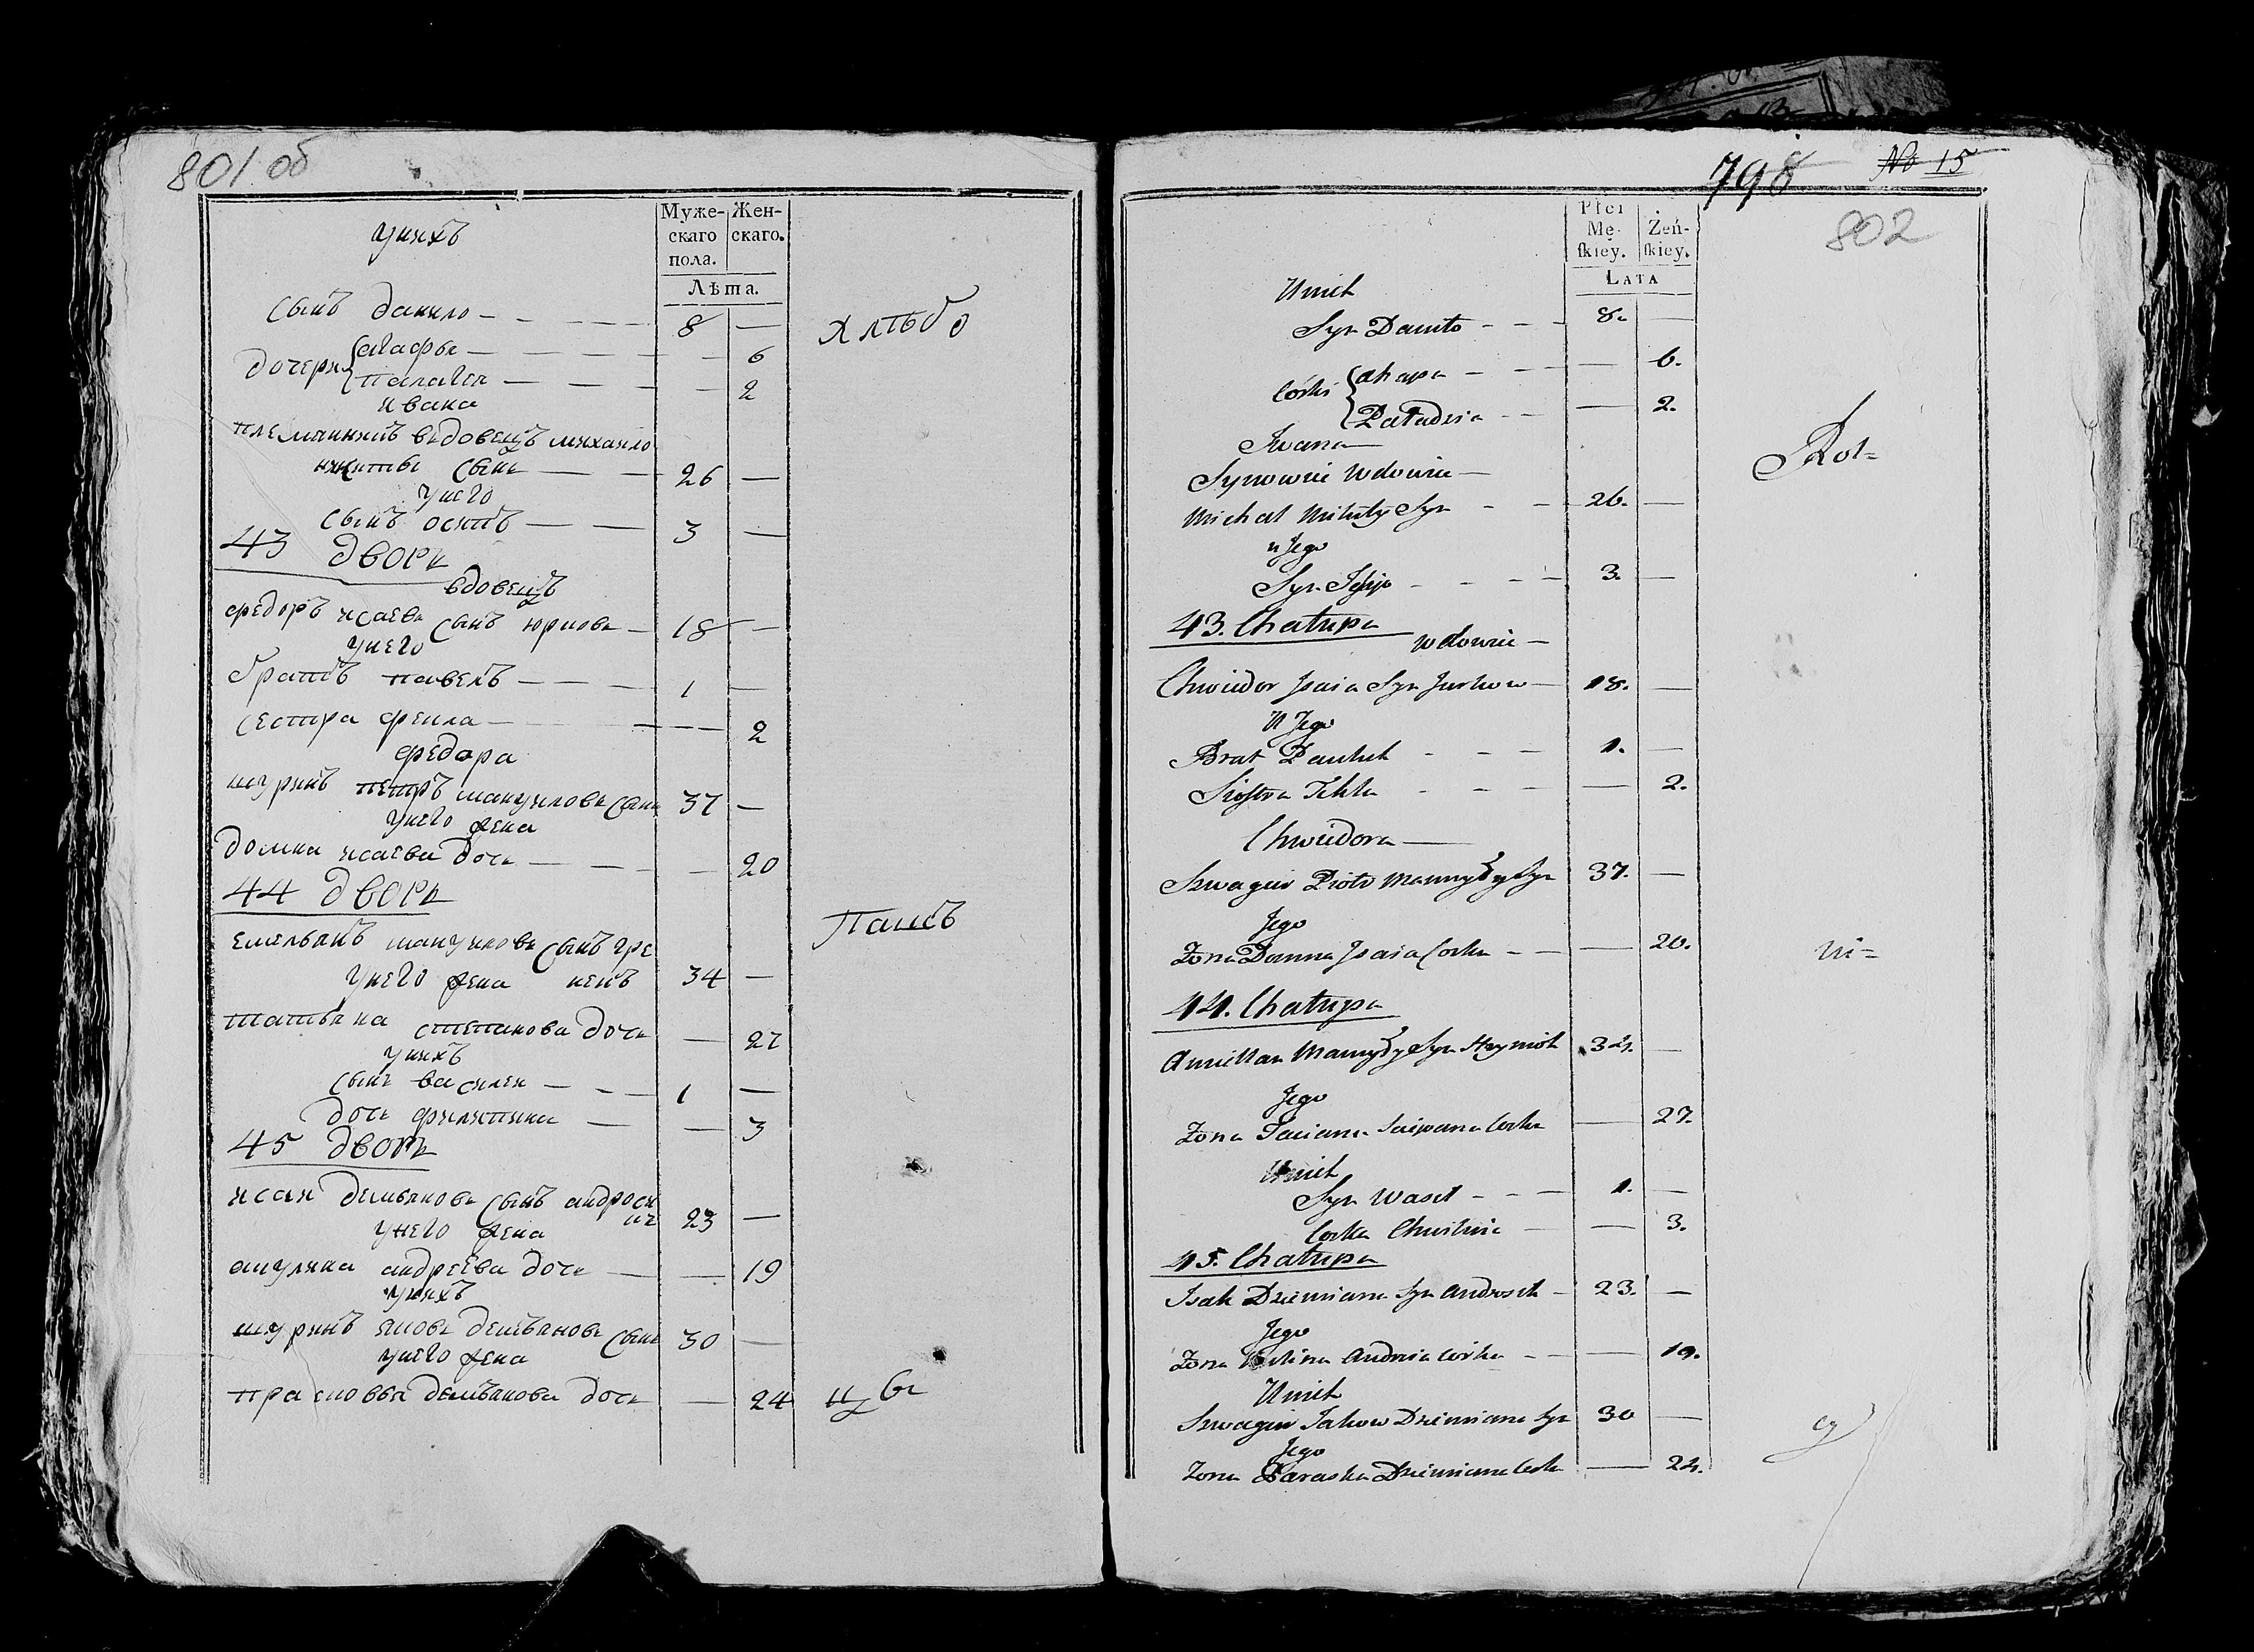 801 об
Муже- Жен-
скаго скаго.
пола.
Лѣта.
унихъ
сынъ данило - - - - 8 -
дочери агафья - - - - 6
палагея - - - - 2
ивана
племянникъ вдовецъ михаило
никиты сынъ - - 26 -
унего
сынъ осипъ - - 3 -
43 дворъ
вдовецъ
федоръ исаевъ сынъ юрковъ - 18 -
унего
братъ павелъ - - - 1 -
сестра фекла - - - 2
федора
шуринъ петръ мануиловъ сынъ 37 -
унего жена
домна исаева дочь - - - 20
44 дворъ
емельянъ мануиловъ сынъ гре
унего жена кенъ 34 -
татьяна степанова дочь - 27
унихъ
сынъ василеи - - 1 -
дочь филипина - - 3
45 дворъ
исаи демьяновъ сынъ андроси
унего жена 23 -
акулина андреева дочь - - 19
унихъ
шуринъ яковъ демьяновъ сынъ 30 -
унего жена
прасковья демьянова дочь - 24
хлѣбо
пашъ
цы
798 No 15
802
Płci
Mę- Żeń-
skiey. skiey.
LATA
U nich
Syn Daniło - - - 8. -
Córki Ahapa - - - - 6.
Pałudzia - - - 2.
Iwana -
Synowiec Wdowiec -
Michał Mikity Syn - - 26. -
u Jego
Syn Josip - - - - 3. -
43. Chałupa
Wdowiec -
Chwiedor Isaia Syn Jurkow - 18. -
U Jego
Brat Pauluk - - - 1. -
Siostra Tekla - - - - 2.
Chwiedora -
Szwagier Piotr Manuyły Syn 37. -
Jego
Zona Domna Isaia Corka - - - 20.
44. Chałupa
Amiellan Manuyły Syn Hrymiok 34. -
Jego
Zona Taciana Sciepana Corka - 27.
U nich
Syn Wasil - - - 1. -
Corka Chwilinia - - 3.
45. Chałupa
Isak Dziemiana Syn Androsik - 23. -
Jego
Zona Kulina Andreia Corka - - - 19.
U nich
Szwagier Jakow Dziemiana Syn 30 -
Jego
Zona Paraska Dziemiana Corka - 24.
Rol=
ni=
cy